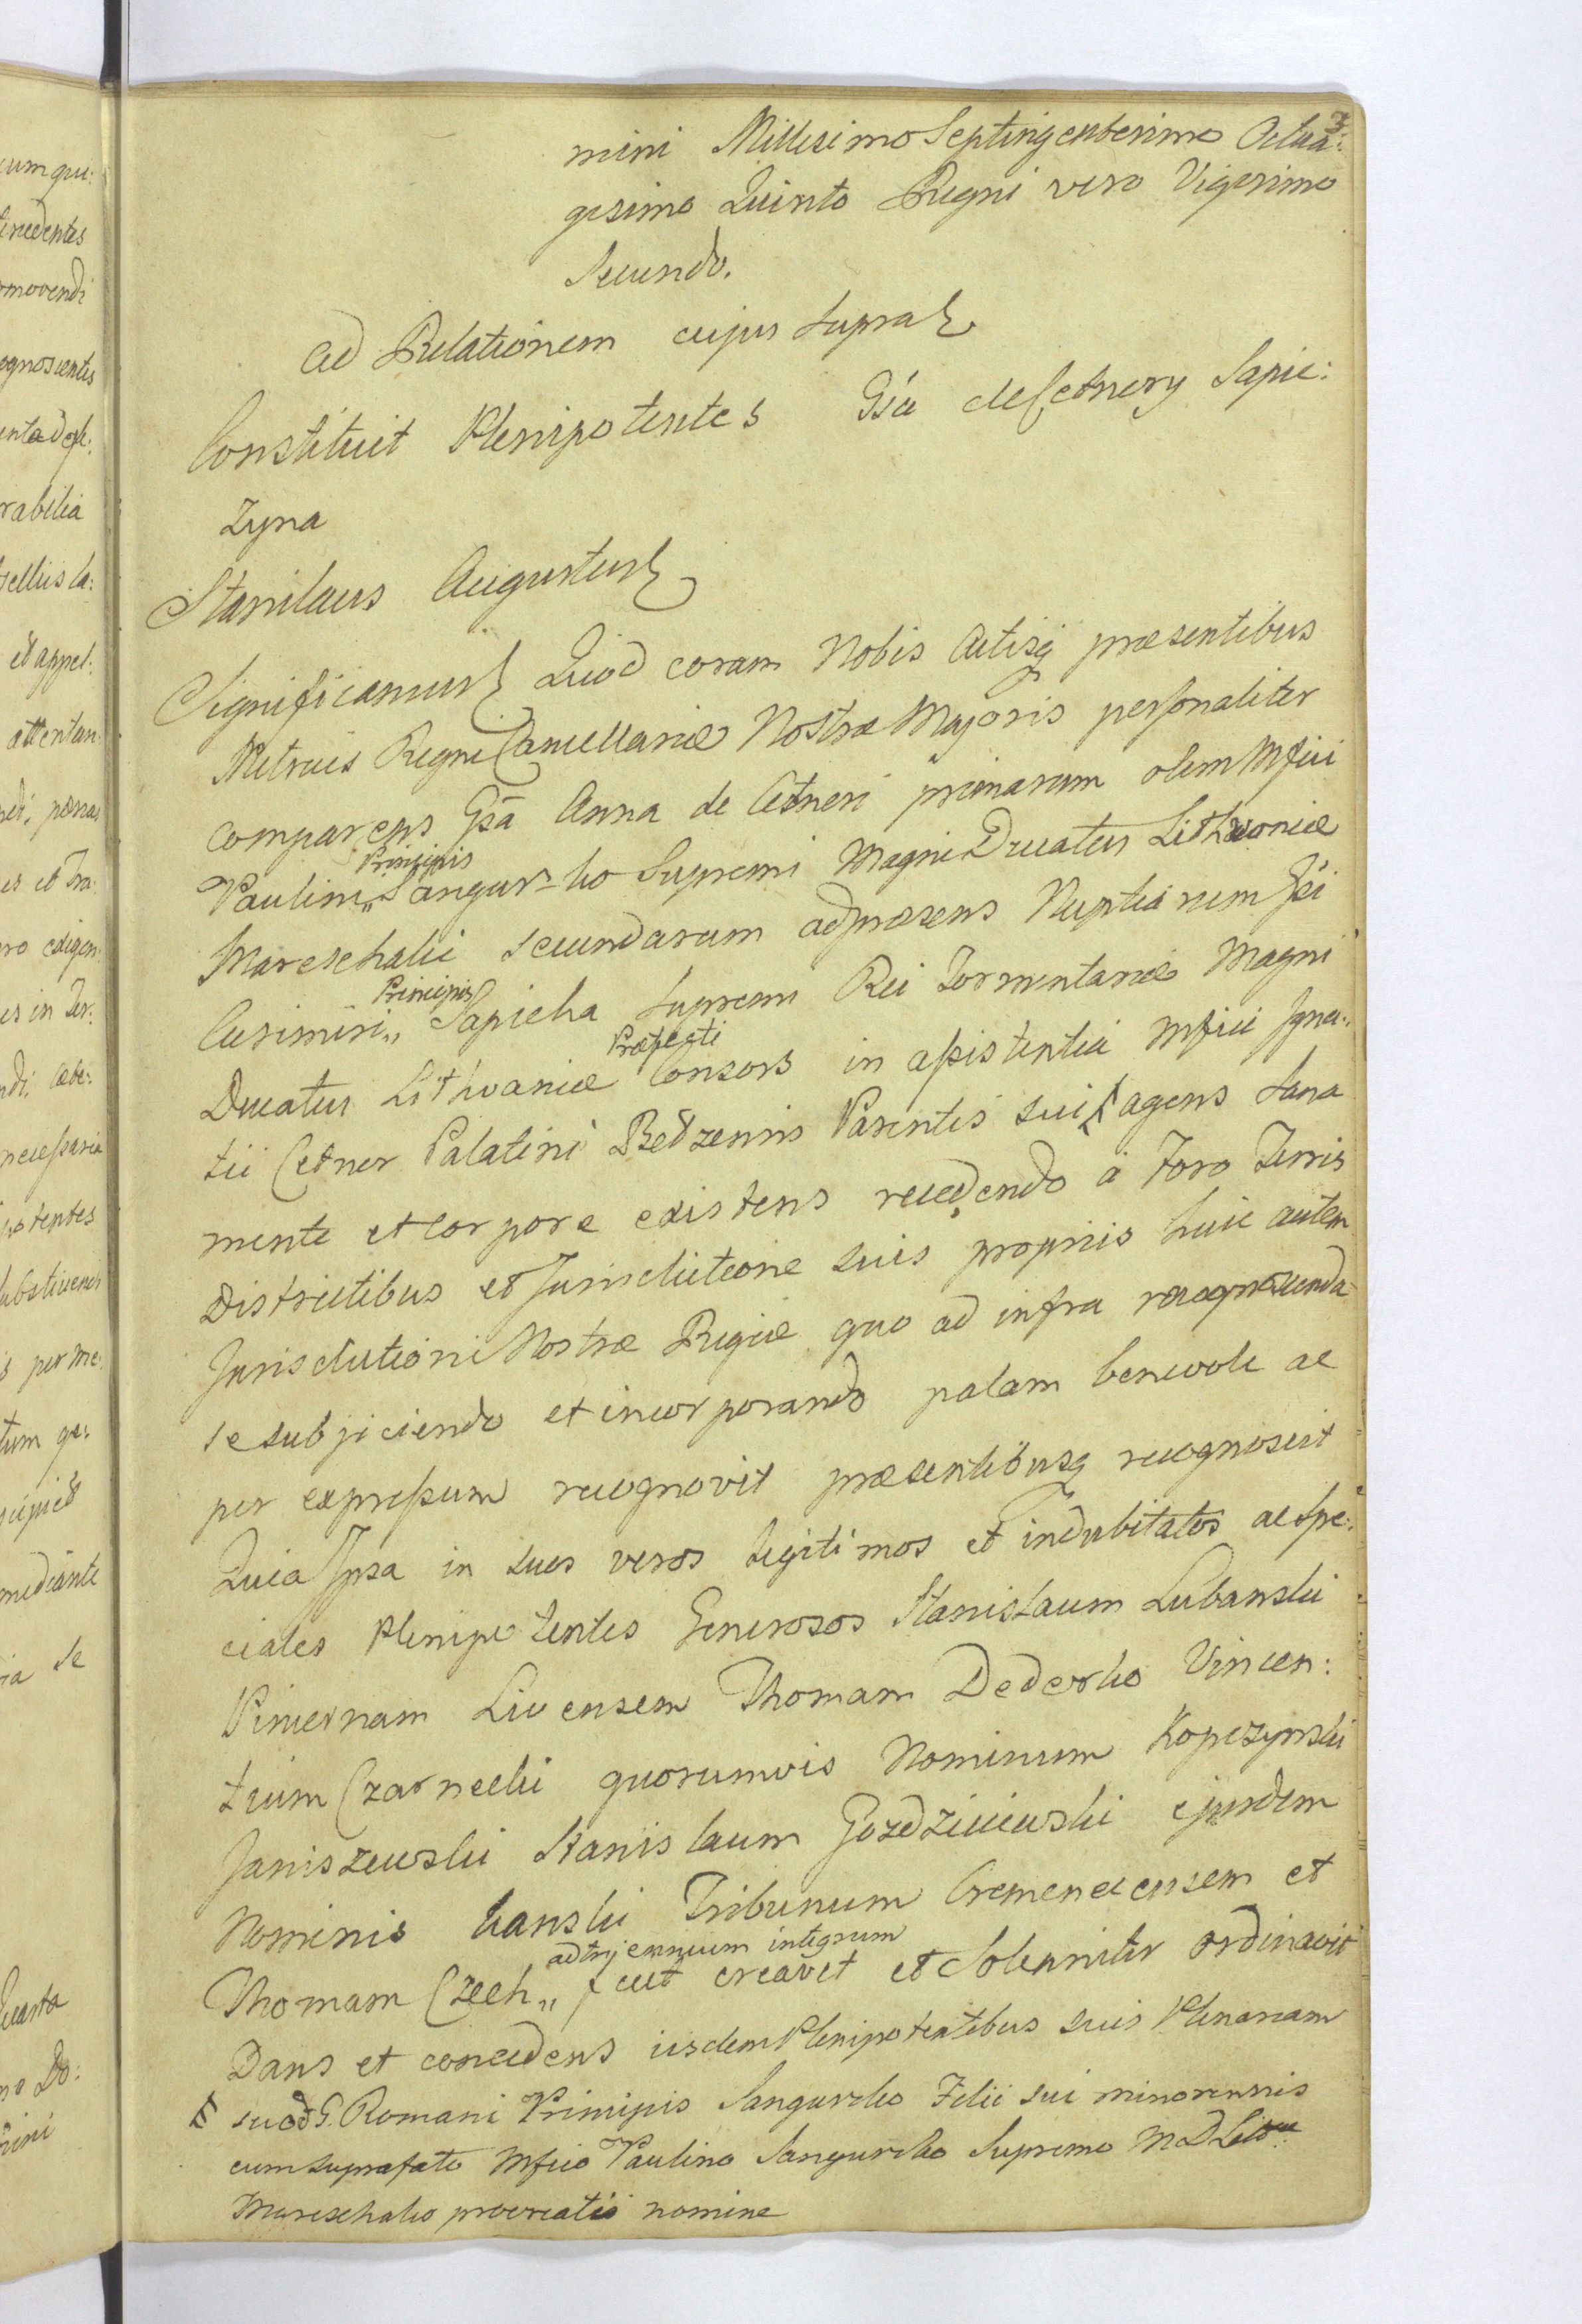 3
mini Millesimo Septingentesimo Octua:
gesimo Quinto Regni vero Vigesimo
Secundo.
Ad Relationem cujus supra
Constituit Plenipotentes Gsa de Cetnery Sapie:
zyna
Stanilaus Augustus
Significamus Quod coram Nobis Actisq praesentibus
Metrices Regni Cancellariae Nostrae Majoris personaliter
comparens Gsa Anna de Cetneri primarum olim Mfici
Principis
Paulini „ Sangusz-ko Supremi Magni Ducatus Lithvoniae
Mareschalci secundarum adpraesens Nuptiarum Jsi
Principis
Casimiri „ Sapieha Supremi Rei Tormentariae Magni
Praefecti
Ducatus Lithvaniae Consors in assistentia Mfici Igna:
tii Cetner Palatini Bedzensis Parentis sui agens sana
mente et corpore existens recedendo a Foro Terris
Districtibus et Jurisdictione suis propriis huic autem
Jurisdictioni Nostrae Regiae quo ad infra recognoscenda
se subjiciendo et incorporando palam benevole ac
per expressum recognovit praesentibusq recognoscit
Quia Ipsa in suos veros legitimos et indubitatos ac Spe:
ciales Plenipotentes Generosos Stanislaum Lubanski
Pincernam Livensem Thomam Dederko Vincen:
tium Czarnecki quorumvis Nominum Kopczynski
Janiszewski Stanislaum Gozdziciewski ejusdem
Nominis hanski Tribunum Cremenecensem et
ad trijennium integrum
Thomam Czech „ fecit creavit et Solenniter ordinavit
Dans et concedens iisdem Plenipotentibus suis Plenariam
suo et G. Romani Principis Sanguszko Filii sui minorennis
cum suprafato Mfico Paulino Sanguszko Supremo M D Litvae
Mareschalco procreatis nomine
cumque:
omovendi
ognoscentis
rabilia
et appel:
attentan
es et Tra:
ro exigen:
es in Ter:
necessaria
potentes
s per me
tum ge:
mediante
ia se
Quarta
no Do:
mini